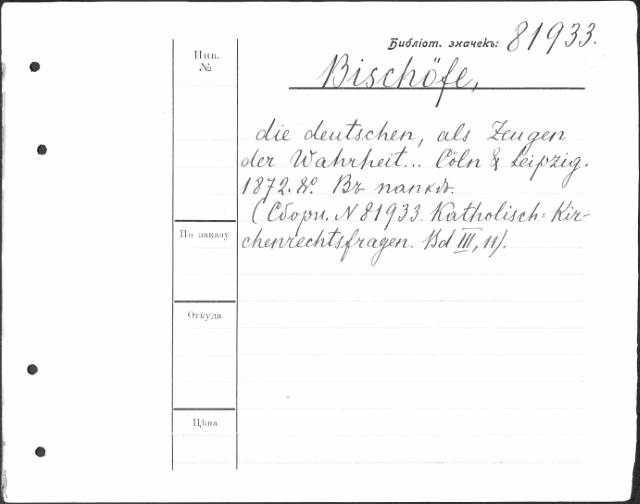 Библіот. значекъ: 81933.
Инв.
№
Bischöfe,
die deutschen, als Zeugen
der Wahrheit... Cöln & Leipzig.
1872. 8°. Въ папкѣ.
(Сборн. N 81933. Katholisch=Kir-
chenrechtsfragen. Bd III, 11).
По заказу
Откуда
Цѣна